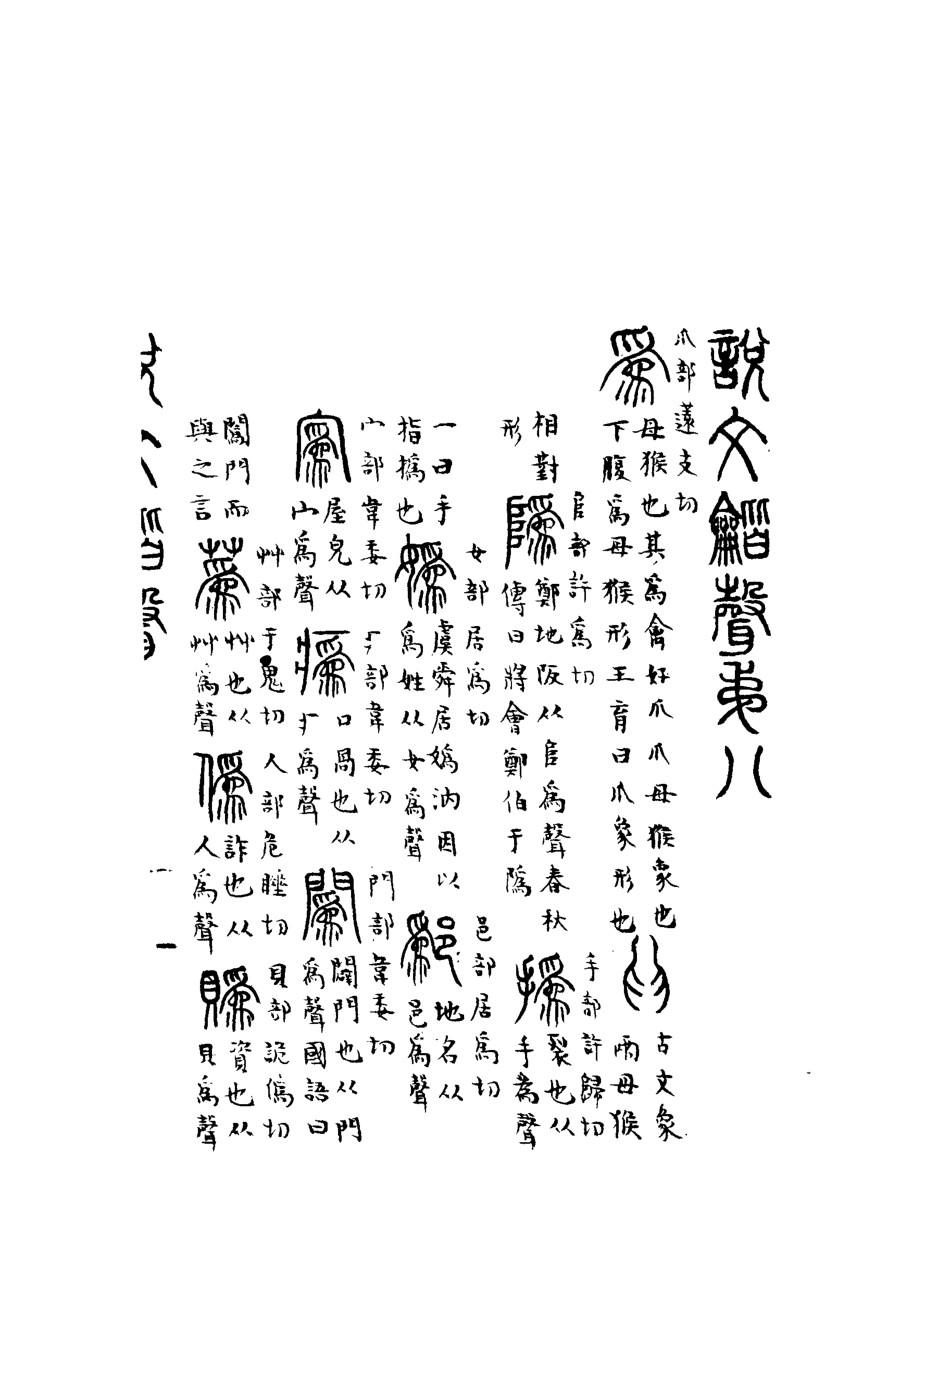 說文龤聲弟八
爪部薳支切
爲
母猴也其爲禽好爪爪母猴象也
下腹爲母猴形王育曰爪象形也
古文象
兩母猴
相對
形
𨸏部許爲切
䧦
鄭地阪从𨸏爲聲春秋
傳曰將會鄭伯于䧦
手部許歸切
撝
裂也从
手爲聲
一曰手
指撝也
女部居爲切
嬀
虞舜居嬀汭因以
爲姓从女爲聲
邑部居爲切
鄬
地名从
邑爲聲
宀部韋委切
寪
屋皃从
宀爲聲
疒部韋委切
𤻟
口咼也从
疒爲聲
門部韋委切
䦱
闢門也从門
爲聲國語曰
䦱門而
與之言
艸部于鬼切
蔿
艸也从
艸爲聲
人部危睡切
僞
詐也从
人爲聲
貝部詭僞切
䞈
資也从
貝爲聲
一